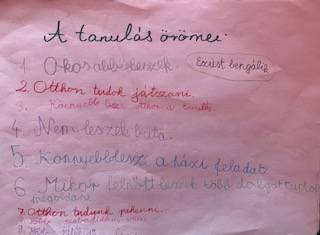 A tanulás örömei.
1. Okosabb leszek.
Ezüst tengelic
2. Otthon tudok játszani.
3. Könnyebb lesz otthon a tanulás.
4. Nem leszek buta.
5. Könnyebb lesz a házi feladat
6. Mikor felnőtt leszek több dolgot tudok
megoldani.
7. Otthon tudunk pihenni.
8. Több szabadidőm